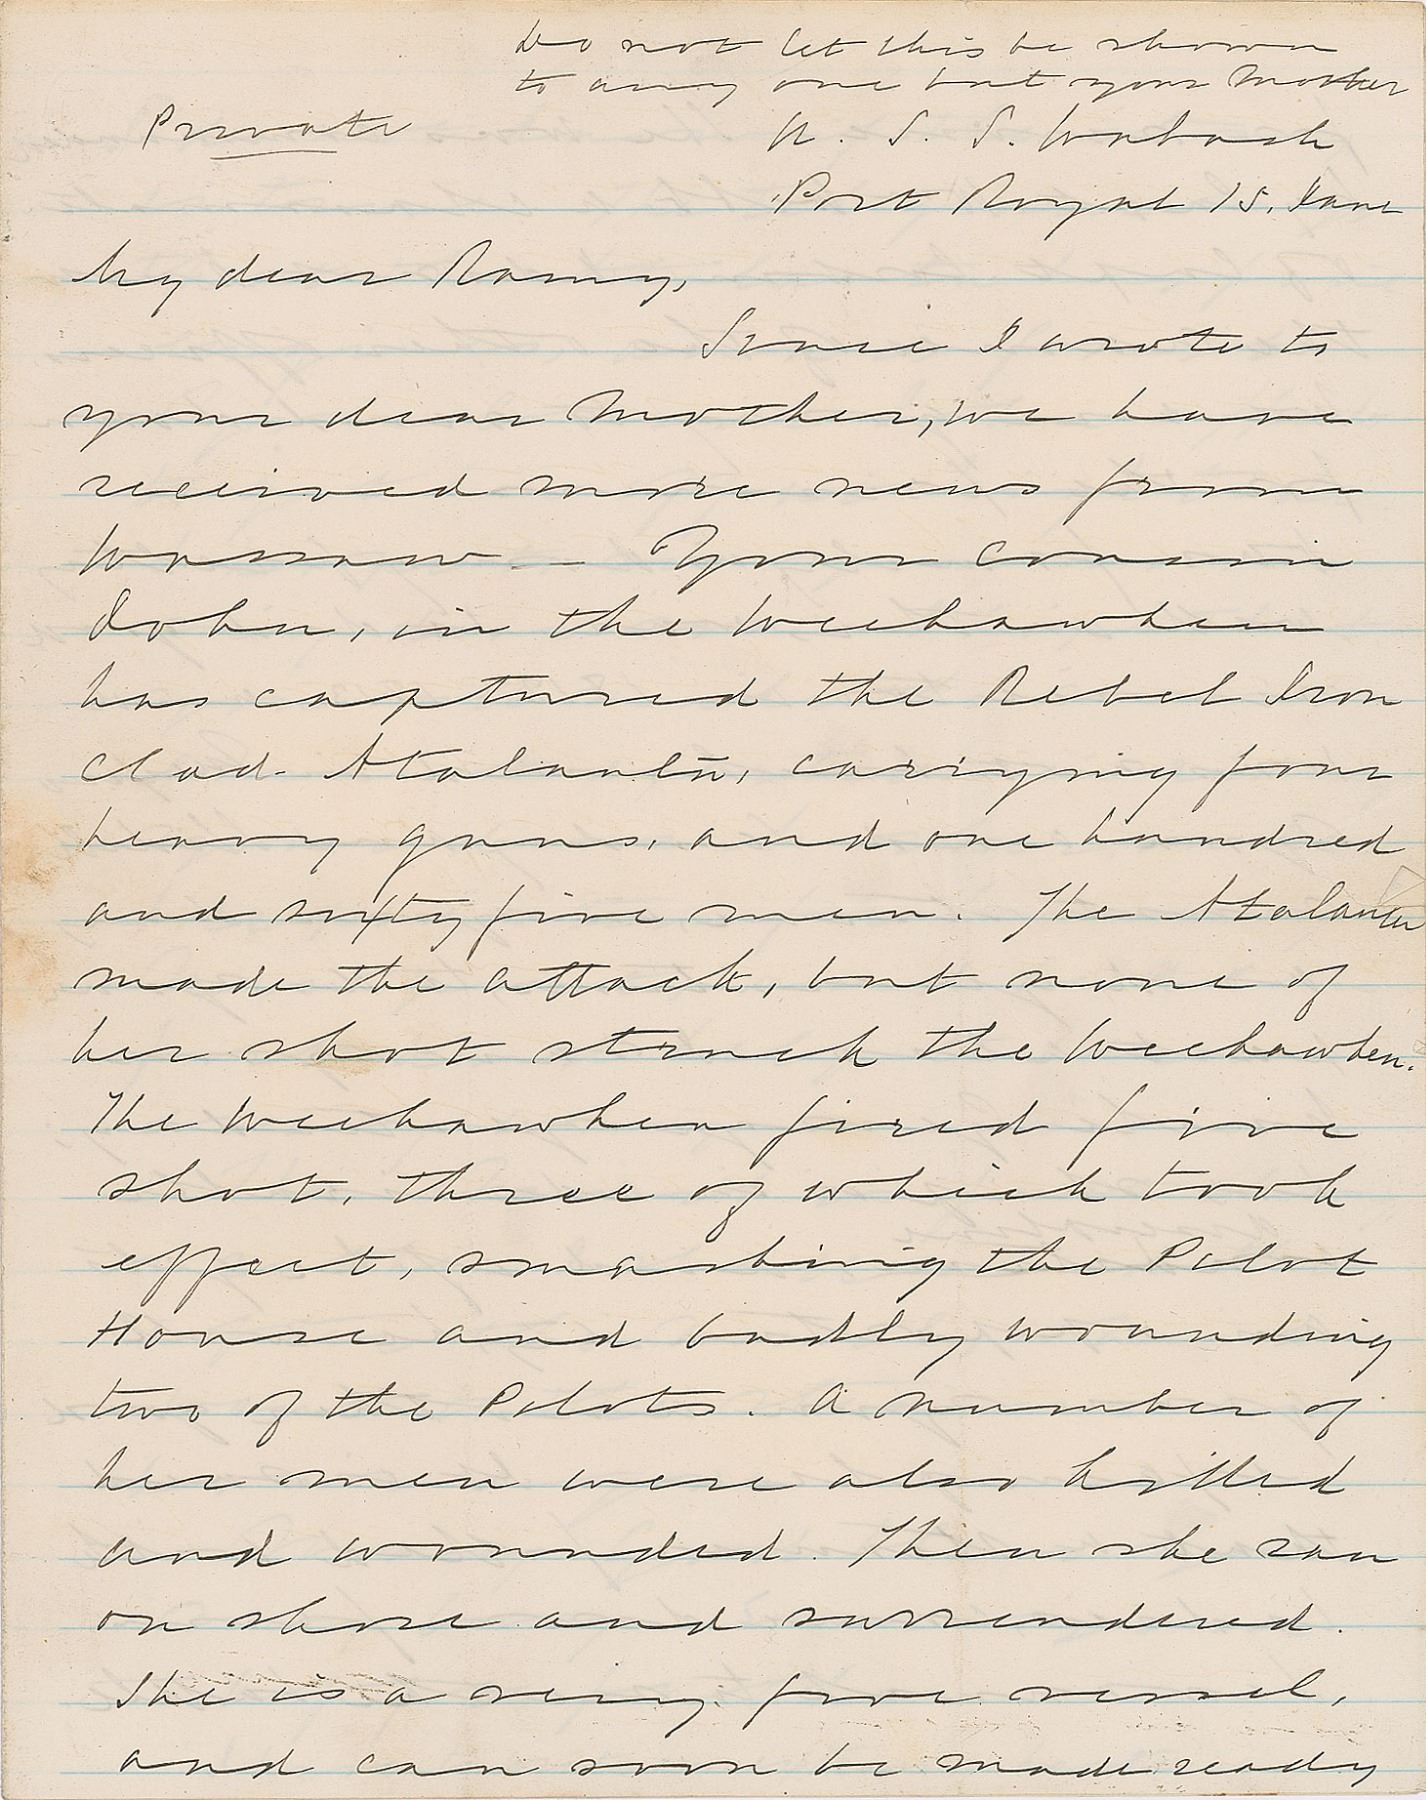 Do not let this be shown
to any one but your Mother
Private
U. S. S. Wabash
Port Royal 15. June
My dear Romy,
Since I wrote to
your dear Mother, we have
received more news from
Wassaw — Your cousin
John, in the Weehawken
has captured the Rebel Iron
clad. Atalanta, carrying four
heavy guns, and one hundred
and sixty five men. The Atalanta
made the attack, but none of
her shot struck the Weehawken.
The Weehawken fired five
shot, three of which took
effect, smashing the Pilot
House and badly wounding
two of the Pilots. A number of
her men were also killed
and wounded. Then she ran
on shore and surrendered.
She is a very fine vessel,
and can soon be made ready